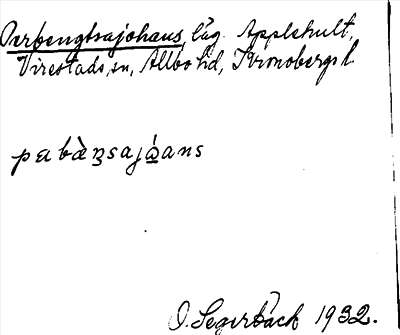 Perbengtsajohans, läg. Applehult,
Virestads, sn, Allbo hd, Kronobergs l.
pɛbàŋsajóans
O. Segerbäck 1932.